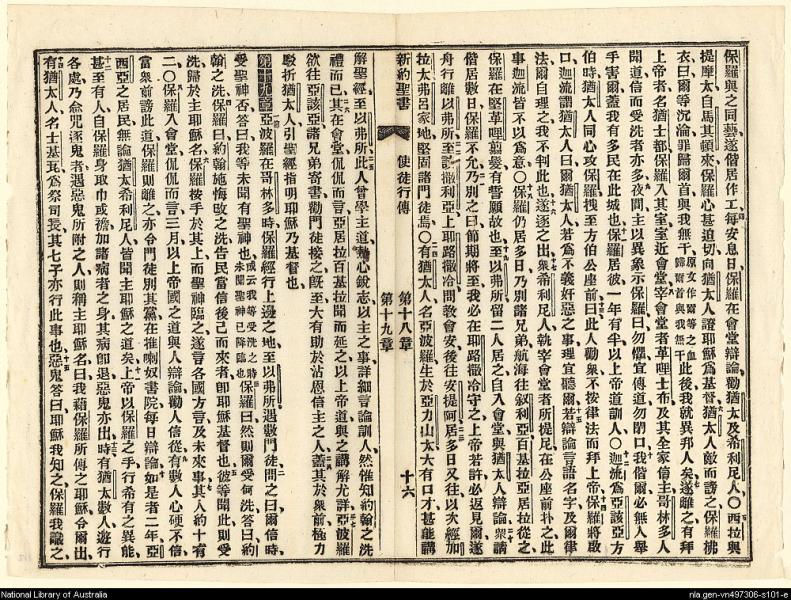 保羅與之同藝遂偕居作工每安息日保羅在會堂辯論勸猶太及希利尼人〇西拉與
提摩太自馬其頓來保羅心甚迫切向猶太人證耶穌爲基督猶太人敵而謗之保羅拂
衣曰爾等沉淪罪歸爾首與我無干原文作爾等之血歸爾首與我無干此後我就異邦人矣遂離之有拜
上帝者名猶士都保羅入其室室近會堂宰會堂者革哩士布及其全家信主哥林多人
聞道信而受洗者亦多夜間主以異象示保羅曰勿懼宜傳道勿閉口我偕爾必無人舉
手害爾蓋我有多民在此城也保羅居彼一年有半以上帝道訓人〇迦流爲亞該亞方
伯時猶太人同心攻保羅拽至方伯公座前曰此人勸衆不按律法而拜上帝保羅將啟
口迦流謂猶太人曰爾猶太人若爲不義奸惡之事理宜聽爾若辯論言語名字及爾律
法爾自理之我不判此也遂逐之出衆希利尼人執宰會堂者所提尼在公座前扑之此
事迦流皆不以爲意〇保羅仍居多日乃別諸兄弟航海往敘利亞百基拉亞居拉從之
保羅在堅革哩翦髮有誓願故也至以弗所留二人居之自入會堂與猶太人辯論衆請
偕居數日保羅不允乃別之曰節期將至我必在耶路撒冷守之上帝若許必返見爾遂
舟行離以弗所至該撒利亞上耶路撒冷問教會安後往安提阿居多日又往以次經加
拉太弗呂家地堅固諸門徒焉〇有猶太人名亞波羅生於亞力山太大有口才甚能講
新約聖書 使徒行傳 第十八章 第十九章 十六
解聖經至以弗所此人曾學主道熱心銳志以主之事詳細言論訓人然惟知約翰之洗
禮而已其在會堂侃侃而言亞居拉百基拉聞而延之以上帝道與之講解尤詳亞波羅
欲往亞該亞諸兄弟寄書勸門徒接之旣至大有助於沾恩信主之人蓋其於衆前極力
駁折猶太人引聖經指明耶穌乃基督也
第十九章 亞波羅在哥林多時保羅經行上邊之地至以弗所遇數門徒問之曰爾信時
受聖神否答曰我等未聞有聖神也或云我等受洗之時未聞聖神已降臨也保羅曰然則爾受何洗答曰約
翰之洗保羅曰約翰施悔改之洗告民當信後己而來者卽耶穌基督也彼等聞此則受
洗歸於主耶穌名保羅按手於其上而聖神臨之遂言各國方言及未來事其人約十有
二〇保羅入會堂侃侃而言三月以上帝國之道與人辯論勸人信從有數人心硬不信
當衆前謗此道保羅則離之亦令門徒別其黨在推喇奴書院每日辯論如是者二年亞
西亞之居民無論猶太希利尼人皆聞主耶穌之道矣上帝以保羅之手行希有之異能
甚至有人自保羅身取巾或襜加諸病者之身其病卽退惡鬼亦出時有猶太數人遊行
各處乃念咒逐鬼者遇惡鬼所附之人則稱主耶穌名曰我藉保羅所傳之耶穌令爾出
有猶太人名士基瓦爲祭司長其七子亦行此事也惡鬼答曰耶穌我知之保羅我識之
National Library of Australia
nla.gen-vn497306-s101-e